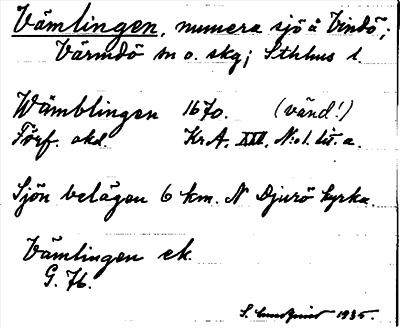 Vämlingen, numera sjö å Vindö;
Värmdö sn o. skg; Sthlms l.
Wämblingen 1670. (vänd!)
Förf. okd. Kr.A. XIII. N:o 1. litt. a.
Sjön belägen 6 km. N Djurö kyrka.
Vämlingen ek.
G. 76.
S. Lundqvist 1935.